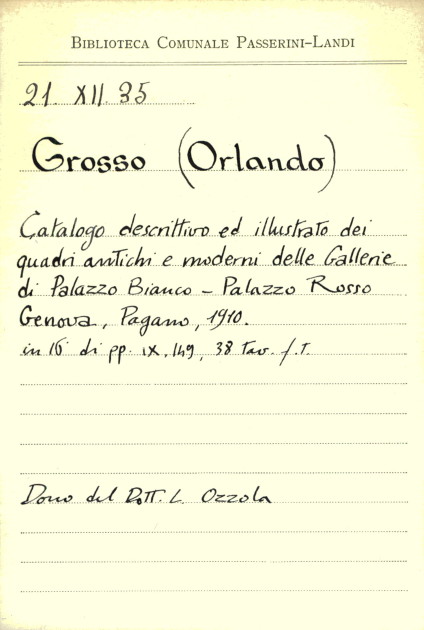 BIBLIOTECA COMUNALE PASSERINI-LANDI
21. XII. 35
Grosso (Orlando)
Catalogo descrittivo ed illustrato dei
quadri antichi e moderni delle Gallerie
di Palazzo Bianco - Palazzo Rosso
Genova, Pagano, 1910.
in 16° di pp. IX. 149, 38 tav. f.t.
Dono del Dott. L. Ozzola